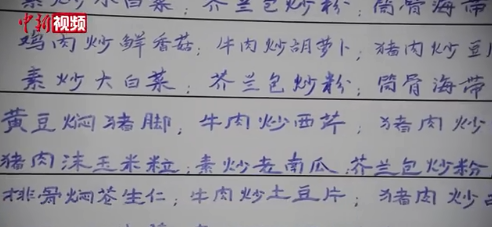 中新视频
素炒水白菜；芥兰包炒粉；筒骨海带
鸡肉炒鲜香菇；牛肉炒胡萝卜；猪肉炒豆
素炒大白菜；芥兰包炒粉；筒骨海带
黄豆焖猪脚；牛肉炒西芹；猪肉炒
猪肉沫玉米粒；素炒老南瓜；芥兰包炒粉
排骨焖苍生仁；牛肉炒土豆片；猪肉炒